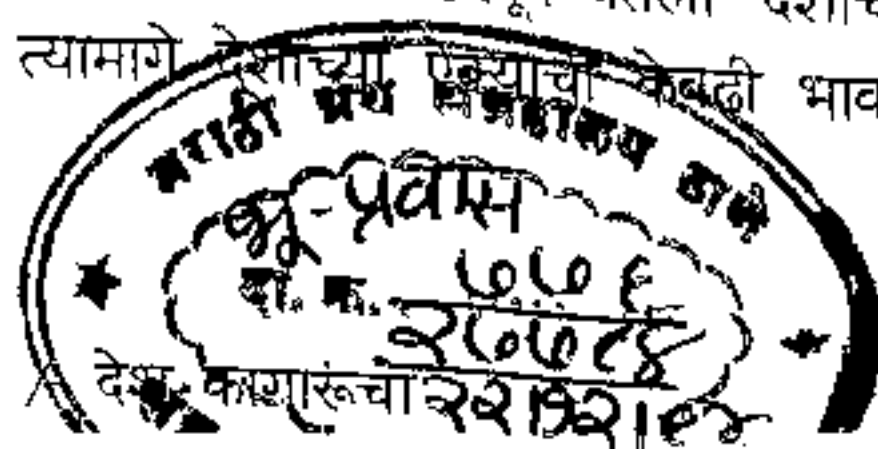 त्यामागे देशाच्या ऐक्याची केवढी भाव
मराठी ग्रंथ संग्रहालय ठाणे
भू-प्रवास
दा. क्र. ७७९
२७७८४
देश कांगारूंचा